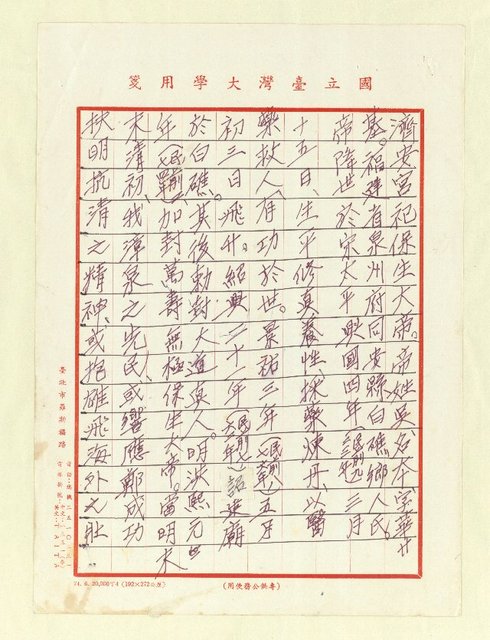 國立臺灣大學用箋
濟安宮祀保生大帝。帝姓吳名本字華
基。福建省泉州府同安縣白礁鄉人氏。
帝降世於宋太平興國四年三月
十五日、生平修真養性、採藥煉丹、以醫
藥救人、有功於世。景祐三年五月
初三日飛升。紹興二十一年詔建廟
於白礁。其後勅封大道真人。明洪熙元
年加封萬壽無極保生大帝。當明
末清初、我漳泉之先民、或響應鄭成功
扶明抗清之精神、或抱雄飛海外之壯
臺北市羅斯福路
74. 6. 20,000 (192×272公厘)
(專供公務使用)